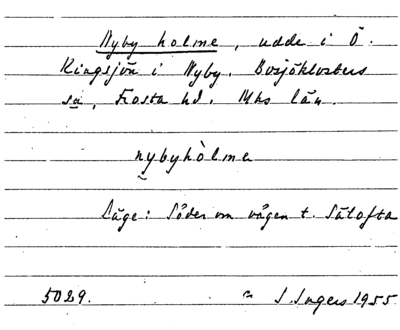 Nyby holme, udde i Ö.
Ringsjön i Nyby, Bosjöklosters
sn, Frosta hd. Mhs län.
nybyhòlme
Läge: Söder om vägen t. Sätofta
5029. I. Ingers 1955